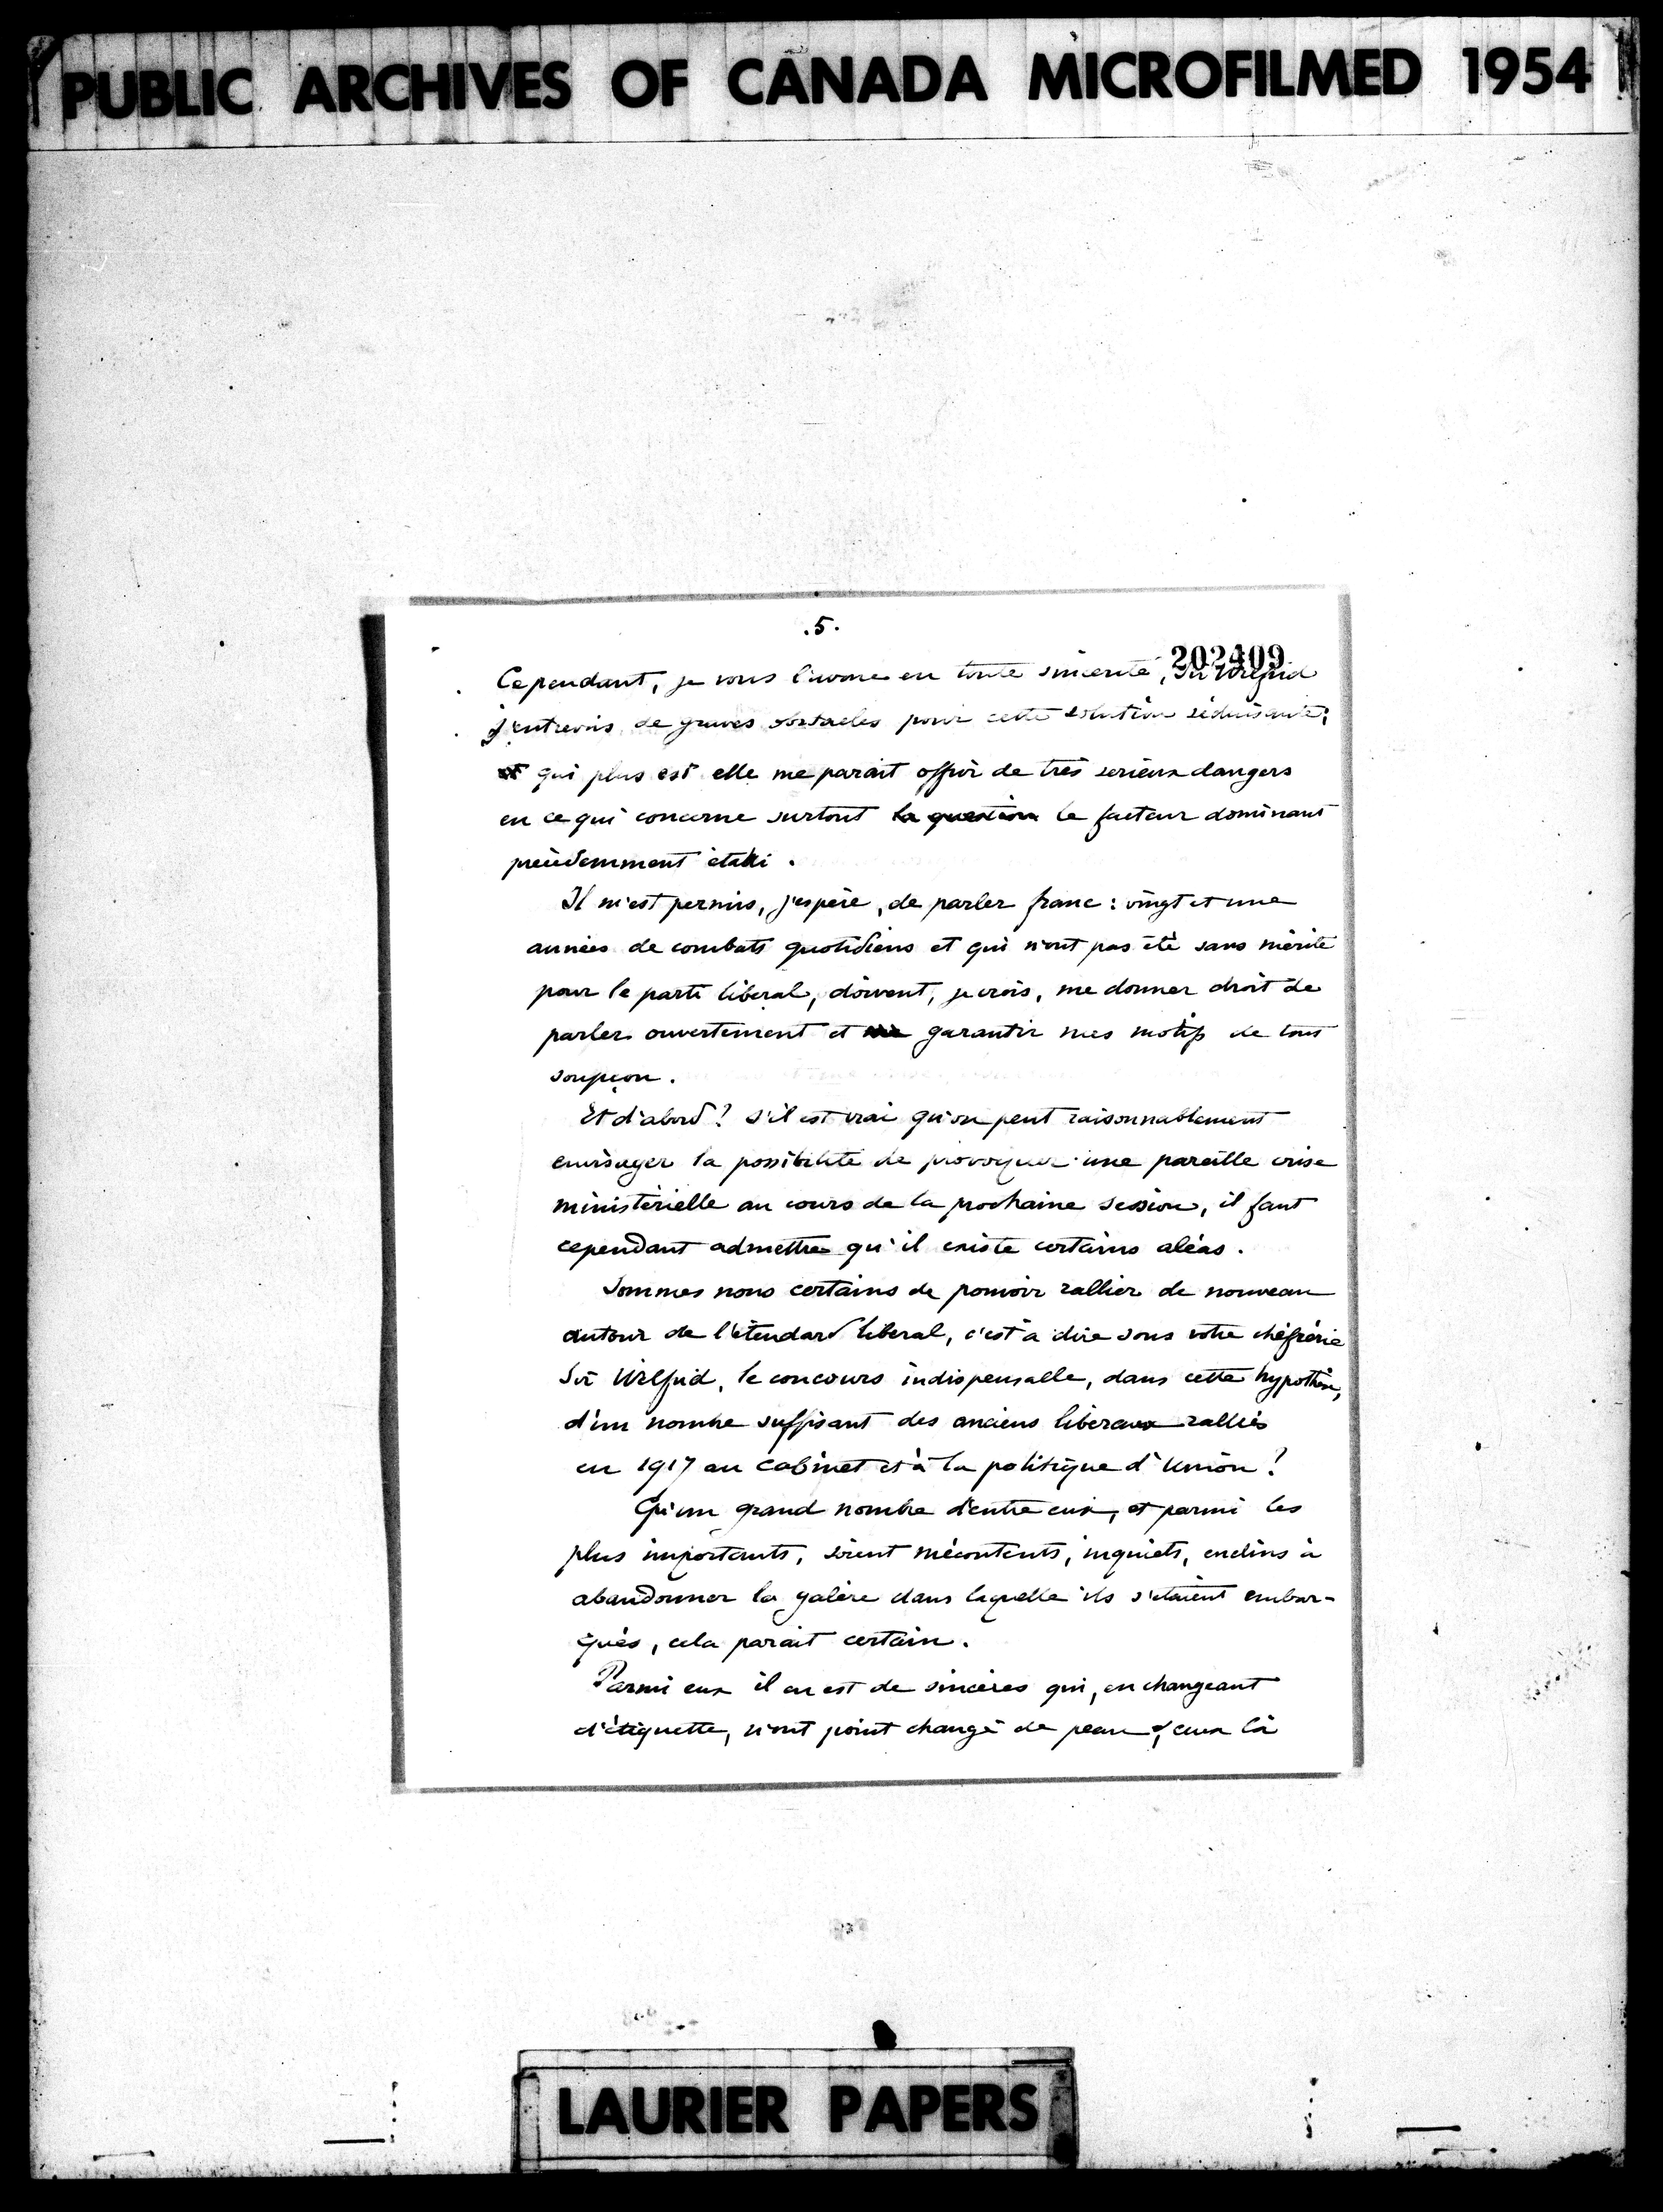 PUBLIC ARCHIVES OF CANADA MICROFILMED 1954
.5.
202409
Cependant, je vous l'avoue en toute sincerité, Sir Wilfrid
j'entrevois de graves obstacles pour cette solution séduisante;
et qui plus est elle me parait offrir de très serieux dangers
en ce qui concerne surtout la question le facteur dominant
précédemment établi.
Il m'est permis, j'espère, de parler franc: vingt et une
années de combats quotidiens et qui n'ont pas été sans mérite
pour le parti libéral, doivent, je crois, me donner droit de
parler ouvertement et garantir mes motifs de tout
soupçon.
Et d'abord! s'il est vrai qu'on peut raisonnablement
envisager la possibilité de provoquer une pareille crise
ministérielle au cours de la prochaine session, il faut
cependant admettre qu'il existe certains aléas.
Sommes nous certains de pouvoir rallier de nouveau
autour de l'étendard liberal, c'est à dire sous votre chéfférie
Sir Wilfrid, le concours indispensable, dans cette hypothèse,
d'un nombre suffisant des anciens libéraux ralliés
en 1917 au Cabinet et à la politique d'Union?
Qu'un grand nombre d'entre eux, et parmi les
plus importants, soient mécontents, inquiets, enclins à
abandonner la galère dans laquelle ils s'étaient embar-
qués, cela parait certain.
Parmi eux il en est de sincères qui, en changeant
d'étiquette, n'ont point changé de peau, ceux là
LAURIER PAPERS